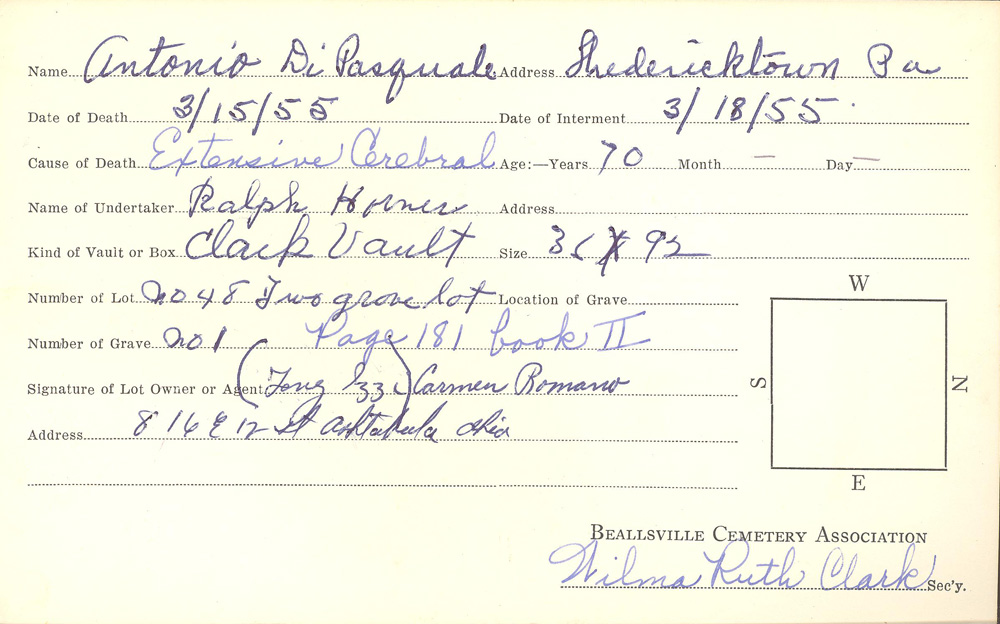 Name Antonio Di Pasquale Address Fredericktown Pa
Date of Death 3/15/55 Date of Interment 3/18/55
Cause of Death Extensive Cerebral Age:—Years 70 Month — Day —
Name of Undertaker Ralph Horner Address
Kind of Vault or Box Clark Vault Size 35 X 92
W
Number of Lot no 48 Two grave lot Location of Grave
Number of Grave no 1 Page 181 book II
Signature of Lot Owner or Agent (Tony Izzi) Carmen Romano
S N
Address 816 E 12 St Ashtabula Ohio
E
BEALLSVILLE CEMETERY ASSOCIATION
Wilma Ruth Clark Sec'y.